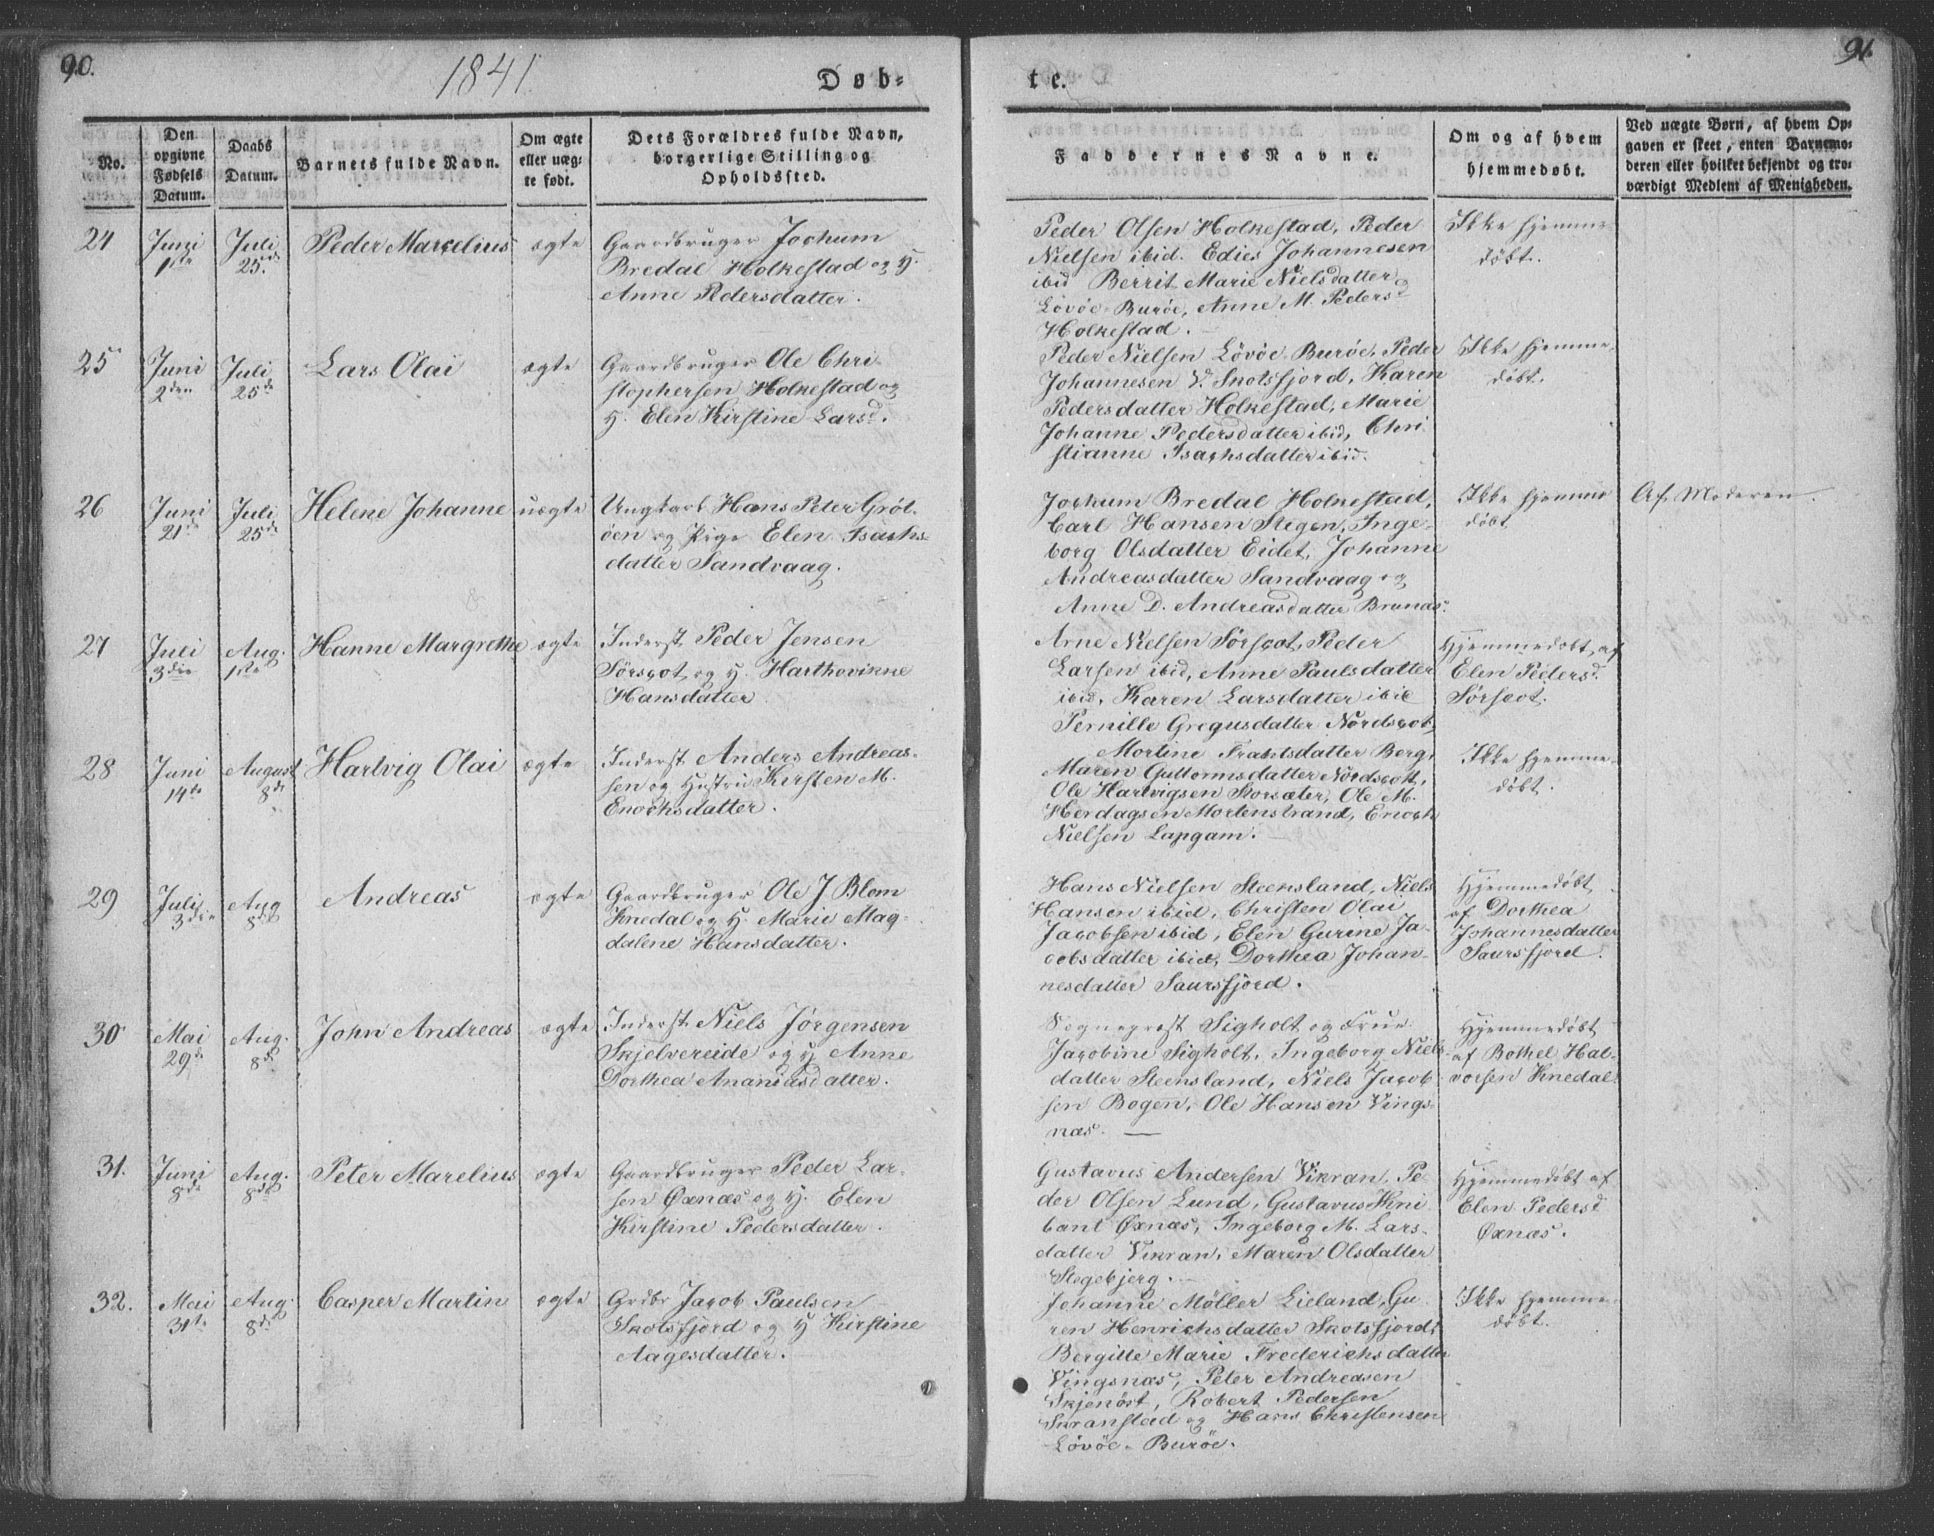 90.
1841
Døb-
te.
91.
No.
Den opgivne Fødsels Datum.
Daabs Datum.
Barnets fulde Navn.
Om ægte eller uæg-te født.
Dets Forældres fulde Navn, borgerlige Stilling og Opholdssted.
Faddernes Navne.
Om og af hvem hjemmedøbt.
Ved uægte Børn, af hvem Op-
gaven er skeet, enten Barnemo-
deren eller hvilket bekjendt og tro-
værdigt Medlem af Menigheden.
24
Juni 1ste
Juli 25de
Peder Marcelius
ægte
Gaardbruger Jochum
Bredal Holkestad og H.
Anne Pedersdatter.
Peder Olsen Holkestad, Peder
Nielsen ibid. Edies Johannesen
ibid Berrit Marie Nielsdatter
Løvøe Burøe, Anne M. Pedersd
Holkestad.
Ikke hjemme-
døbt.
25
Juni 2den
Juli 25de
Lars Olai
ægte
Gaardbruger Ole Chri-
stophersen Holkestad og
H. Elen Kirstine Larsd.
Peder Nielsen Løvøe Burøe, Peder
Johannesen V. Skotsfjord, Karen
Pedersdatter Holkestad, Marie
Johanne Pedersdatter ibid, Chri
stianne Isachsdatter ibid.
Ikke hjemme-
døbt.
26
Juni 21de
Juli 25de
Helene Johanne
uægte
Ungkarl Hans Peter Grøt-
øen og Pige Elen Isachs-
datter Sandvaag.
Jochum Bredal Holkestad,
Carl Hansen Stegen, Inge-
borg Olsdatter Eidet, Johanne
Andreasdatter Sandvaag og
Anne D. Andreasdatter Brunas.
Ikke hjemme
døbt
Af Moderen.
27
Juli 3die
Aug. 1ste
Hanne Margrethe
ægte
Inderst Peder Jensen
Sørscot og H. Harthovinne
Hansdatter
Arne Nielsen Sørscot, Peder
Larsen ibid, Anne Paulsdatter
ibid, Karen Larsdatter ibid
Pernille Gregusdatter Nordscot
Hjemmedøbt af
Elen Pedersd
Sørscot.
28
Juni 14te
August 8de
Hartvig Olai
ægte
Inderst Anders Andreas-
sen og Hustru Kirsten M.
Enochsdatter.
Mortine Frantsdatter Berg,
Maren Guttormsdatter Nordscott,
Ole Hartvigsen Storsæter, Ole M.
Herdagsen Mortenstrand, Enoch
Nielsen Lapgam.
Ikke hjemme-
døbt.
29
Juli 3die
Aug 8de
Andreas
ægte
Gaardbruger Ole J. Blom
Knedal og H. Marie Mag-
dalene Hansdatter.
Hans Nielsen Steensland, Niels
Hansen ibid, Christen Olai
Jacobsen ibid, Elen Gurine Ja-
cobsdatter ibid, Dorthea Johan-
nesdatter Saursfjord.
Hjemmedøbt
af Dorthea
Johannesdatter
Saursfjord.
30
Mai 29de
Aug. 8de
John Andreas
ægte
Inderst Niels Jørgensen
Skjelvereide og H Anne
Dorthea Ananiasdatter.
Sognepræst Sigholt og Frue
Jacobine Sigholt, Ingeborg Niels-
datter Steensland, Niels Jacob
sen Bogen, Ole Hansen Vings
næs.
Hjemmedøbt
af Bothel Hal-
vorsen Knedal.
31.
Juni 8de
Aug. 8de
Peter Marelius
ægte
Gaardbruger Peder Lar-
sen Øxnæs og H. Elen
Kirstine Pedersdatter.
Gustavus Andersen Vikran, Pe-
der Olsen Lund, Gustavus Kni
bant Øxnæs, Ingeborg M. Lars-
datter Vikran, Maren Olsdatter
Stegebjerg.
Hjemmedøbt af
Elen Pedersd
Øxnæs.
32.
Mai 31te
Aug. 8de
Casper Martin
ægte
Grdbr Jacob Paulsen
Skotsfjord og H Kirstine
Aagesdatter.
Johanne Møller Lieland, Gu-
ren Henrichsdatter Skotsfjord,
Bergitte Marie Frederichsdatter
Vingsnæs, Peter Andreasen
Skjenøst, Robert Pedersen
Skranstad og Hans Christensen
Løvøe-Burøe.
Ikke hjemme-
døbt.